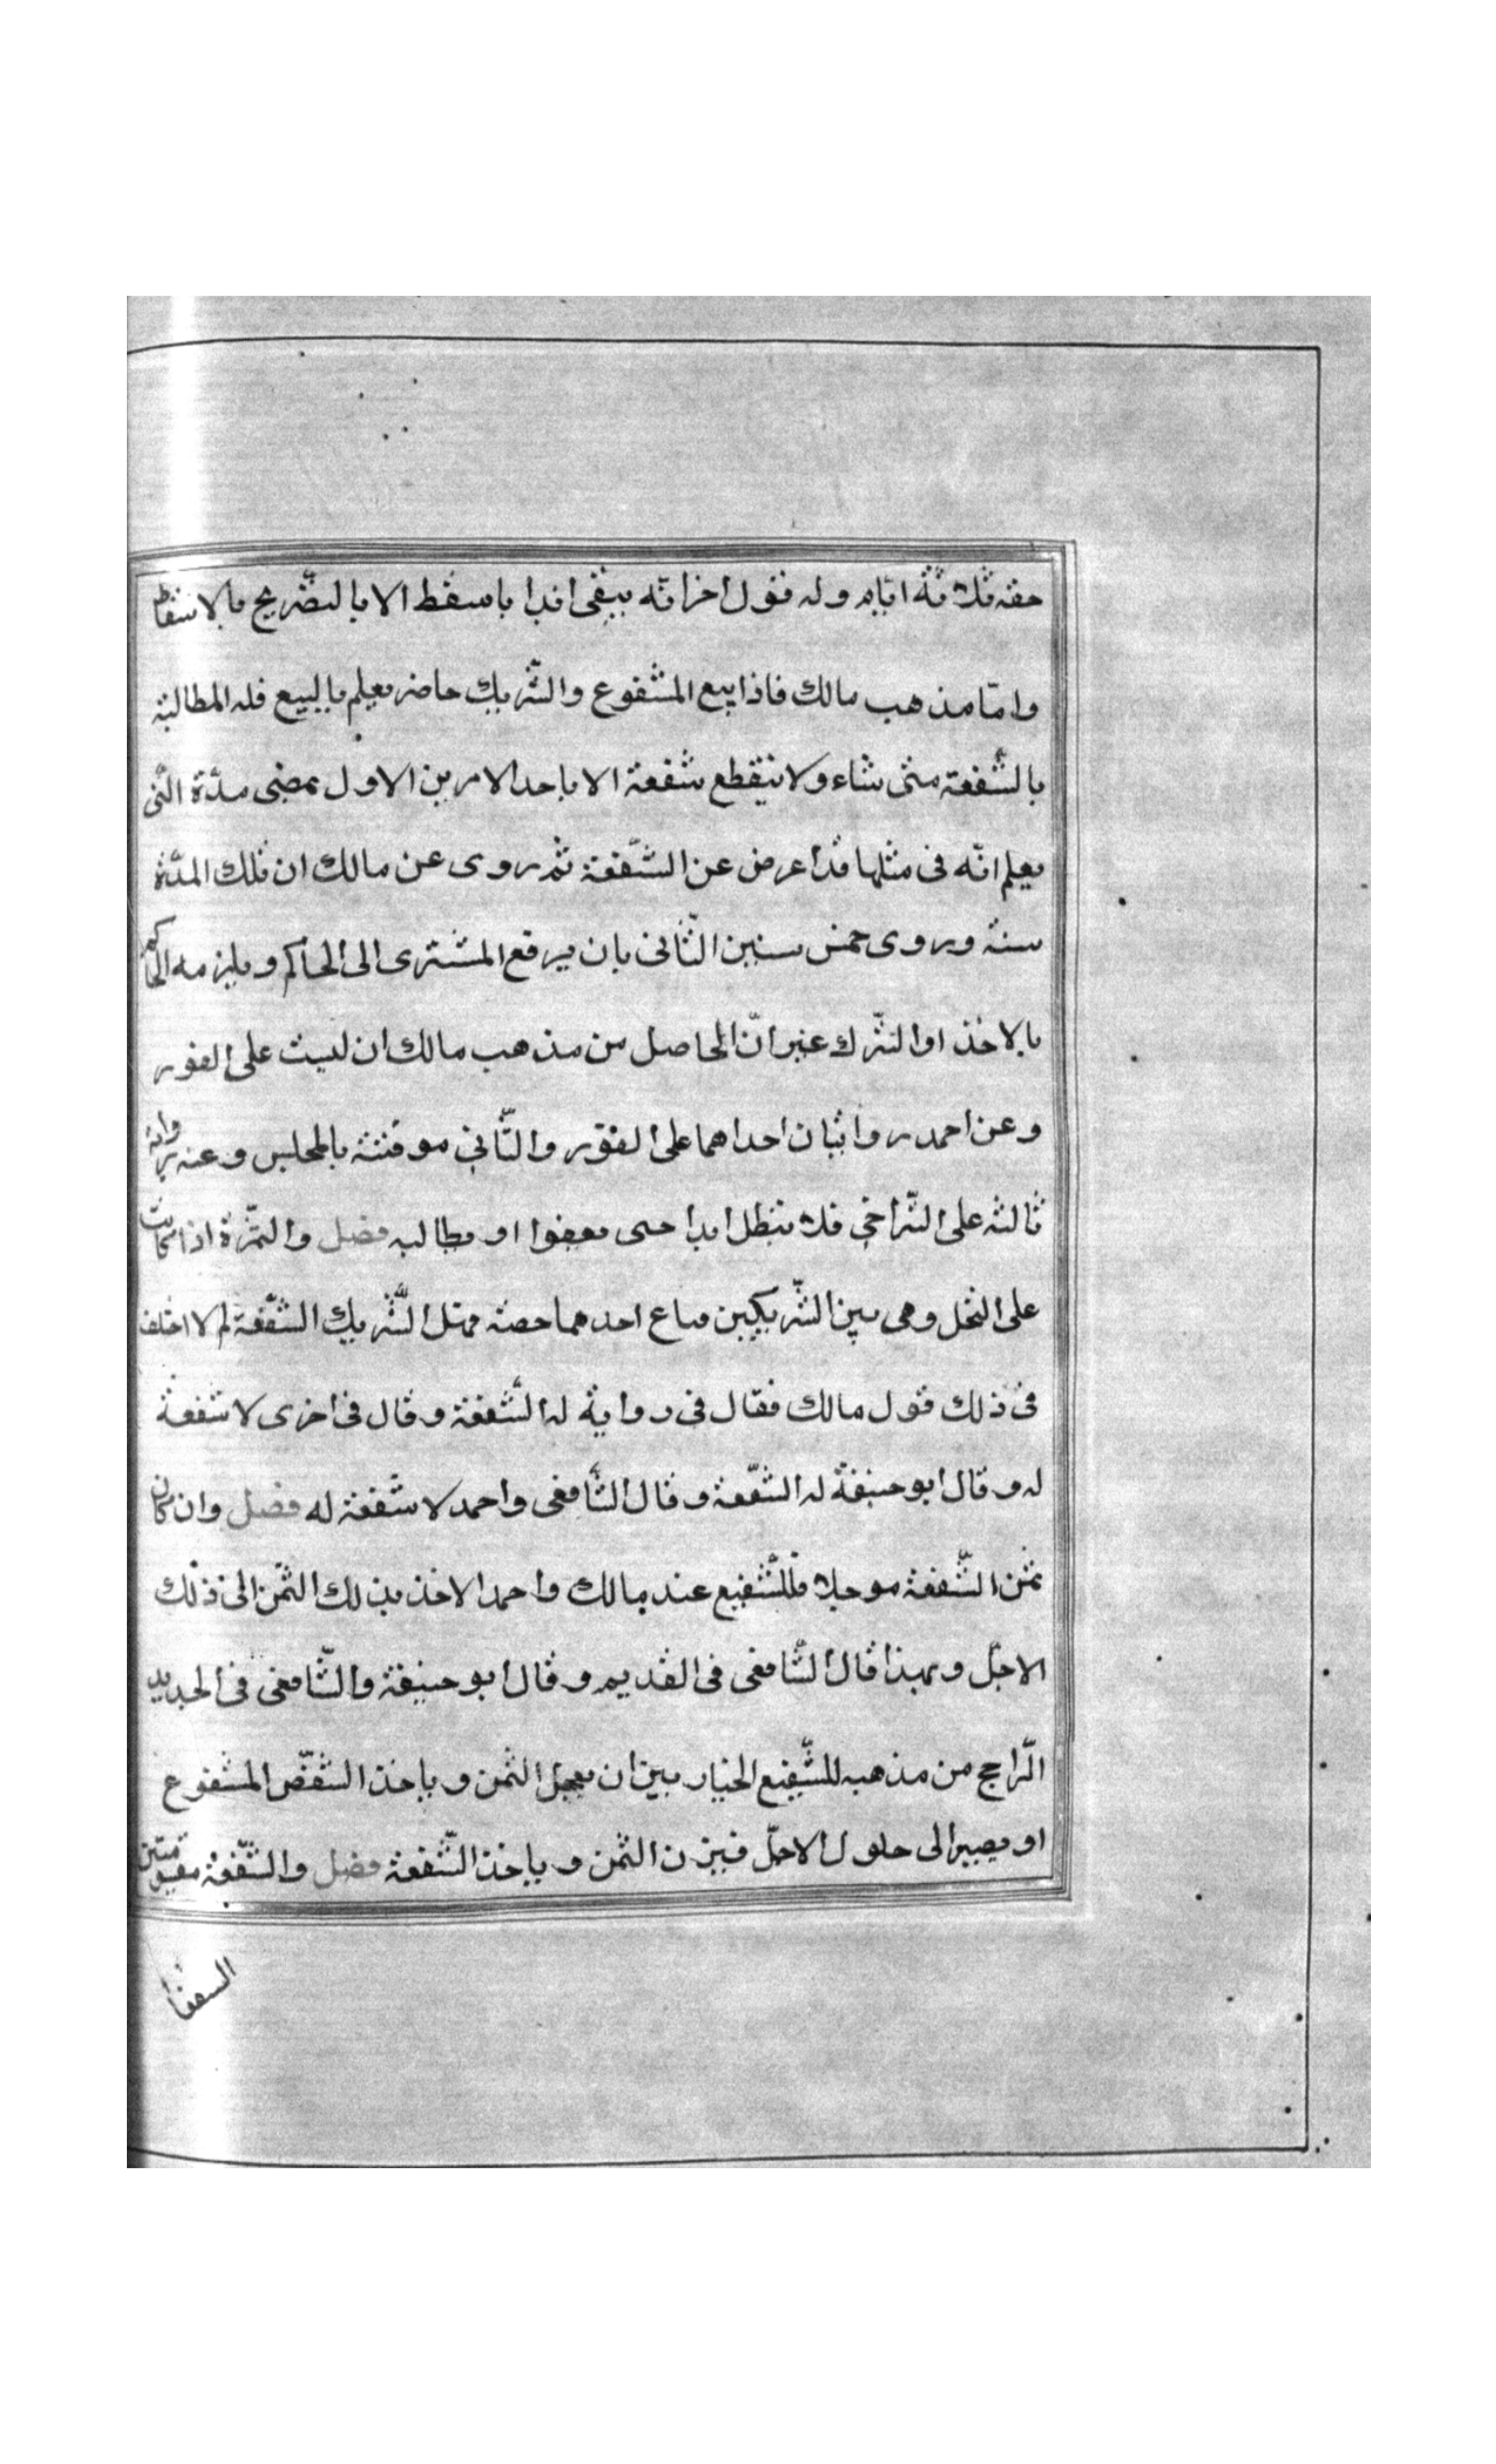 حقه ثلاثة ايّام وله قول اخر انّه يبقى ابدا يا سقط الا بالتصّريح بالاسقاط
وامّا مذهب مالك فاذا بيع المشفوع والشّريك حاضر يعلم بالبيع فله المطالبة
بالشّفعة متى شاء ولا ينقطع شفعة الا باحد الامرين الاول بمضى مدّة الّتى
يعلم انّه فى مثلها قد اعرض عن الشّفعة ثم روى عن مالك ان تلك المدّة
سنة وروى خمس سنين الثّانى بان يرفع المشترى الى الحاكم ويلزمه الحاكم
بالاخذ او الترّك غير انّ الحاصل من مذهب مالك ان ليست على الفور
وعن احمد روايتان احداهما على الفور والثّاني موقتة بالمجلس وعنه رواية
ثالثة على الترّاخي فلا تبطل ابدا حتى يعفوا او يطالبه فصل والثمّرة اذا كانت
على النخل وهى بين الشّريكين فباع احدهما حصته فهل للّشريك الشّفعة لم لا اختلف
فى ذلك قول مالك فقال فى رواية له الشّفعة وقال فى اخرى لا شفعة
له وقال ابو حنيفة له الشفّعة وقال الشّافعى واحمد لا شفعة له فصل وان كان
ثمن الشّفعة موجلا فللّشفيع عند مالك واحمد الاخذ بذلك الثمّن الى ذلك
الاجل وبهذا قال الشّافعى فى القديم وقال ابو حنيفة والشّافعى فى الجديد
الرّاجح من مذهبه للشّفيع الخيار بين ان يعجل الثمن وياخذ الشقصّ المشفوع
او يصير الى حلول الاجلّ فيزن الثمن وياخذ الشّفعة فصل والشّفعة مقسومة بين
الشفعا